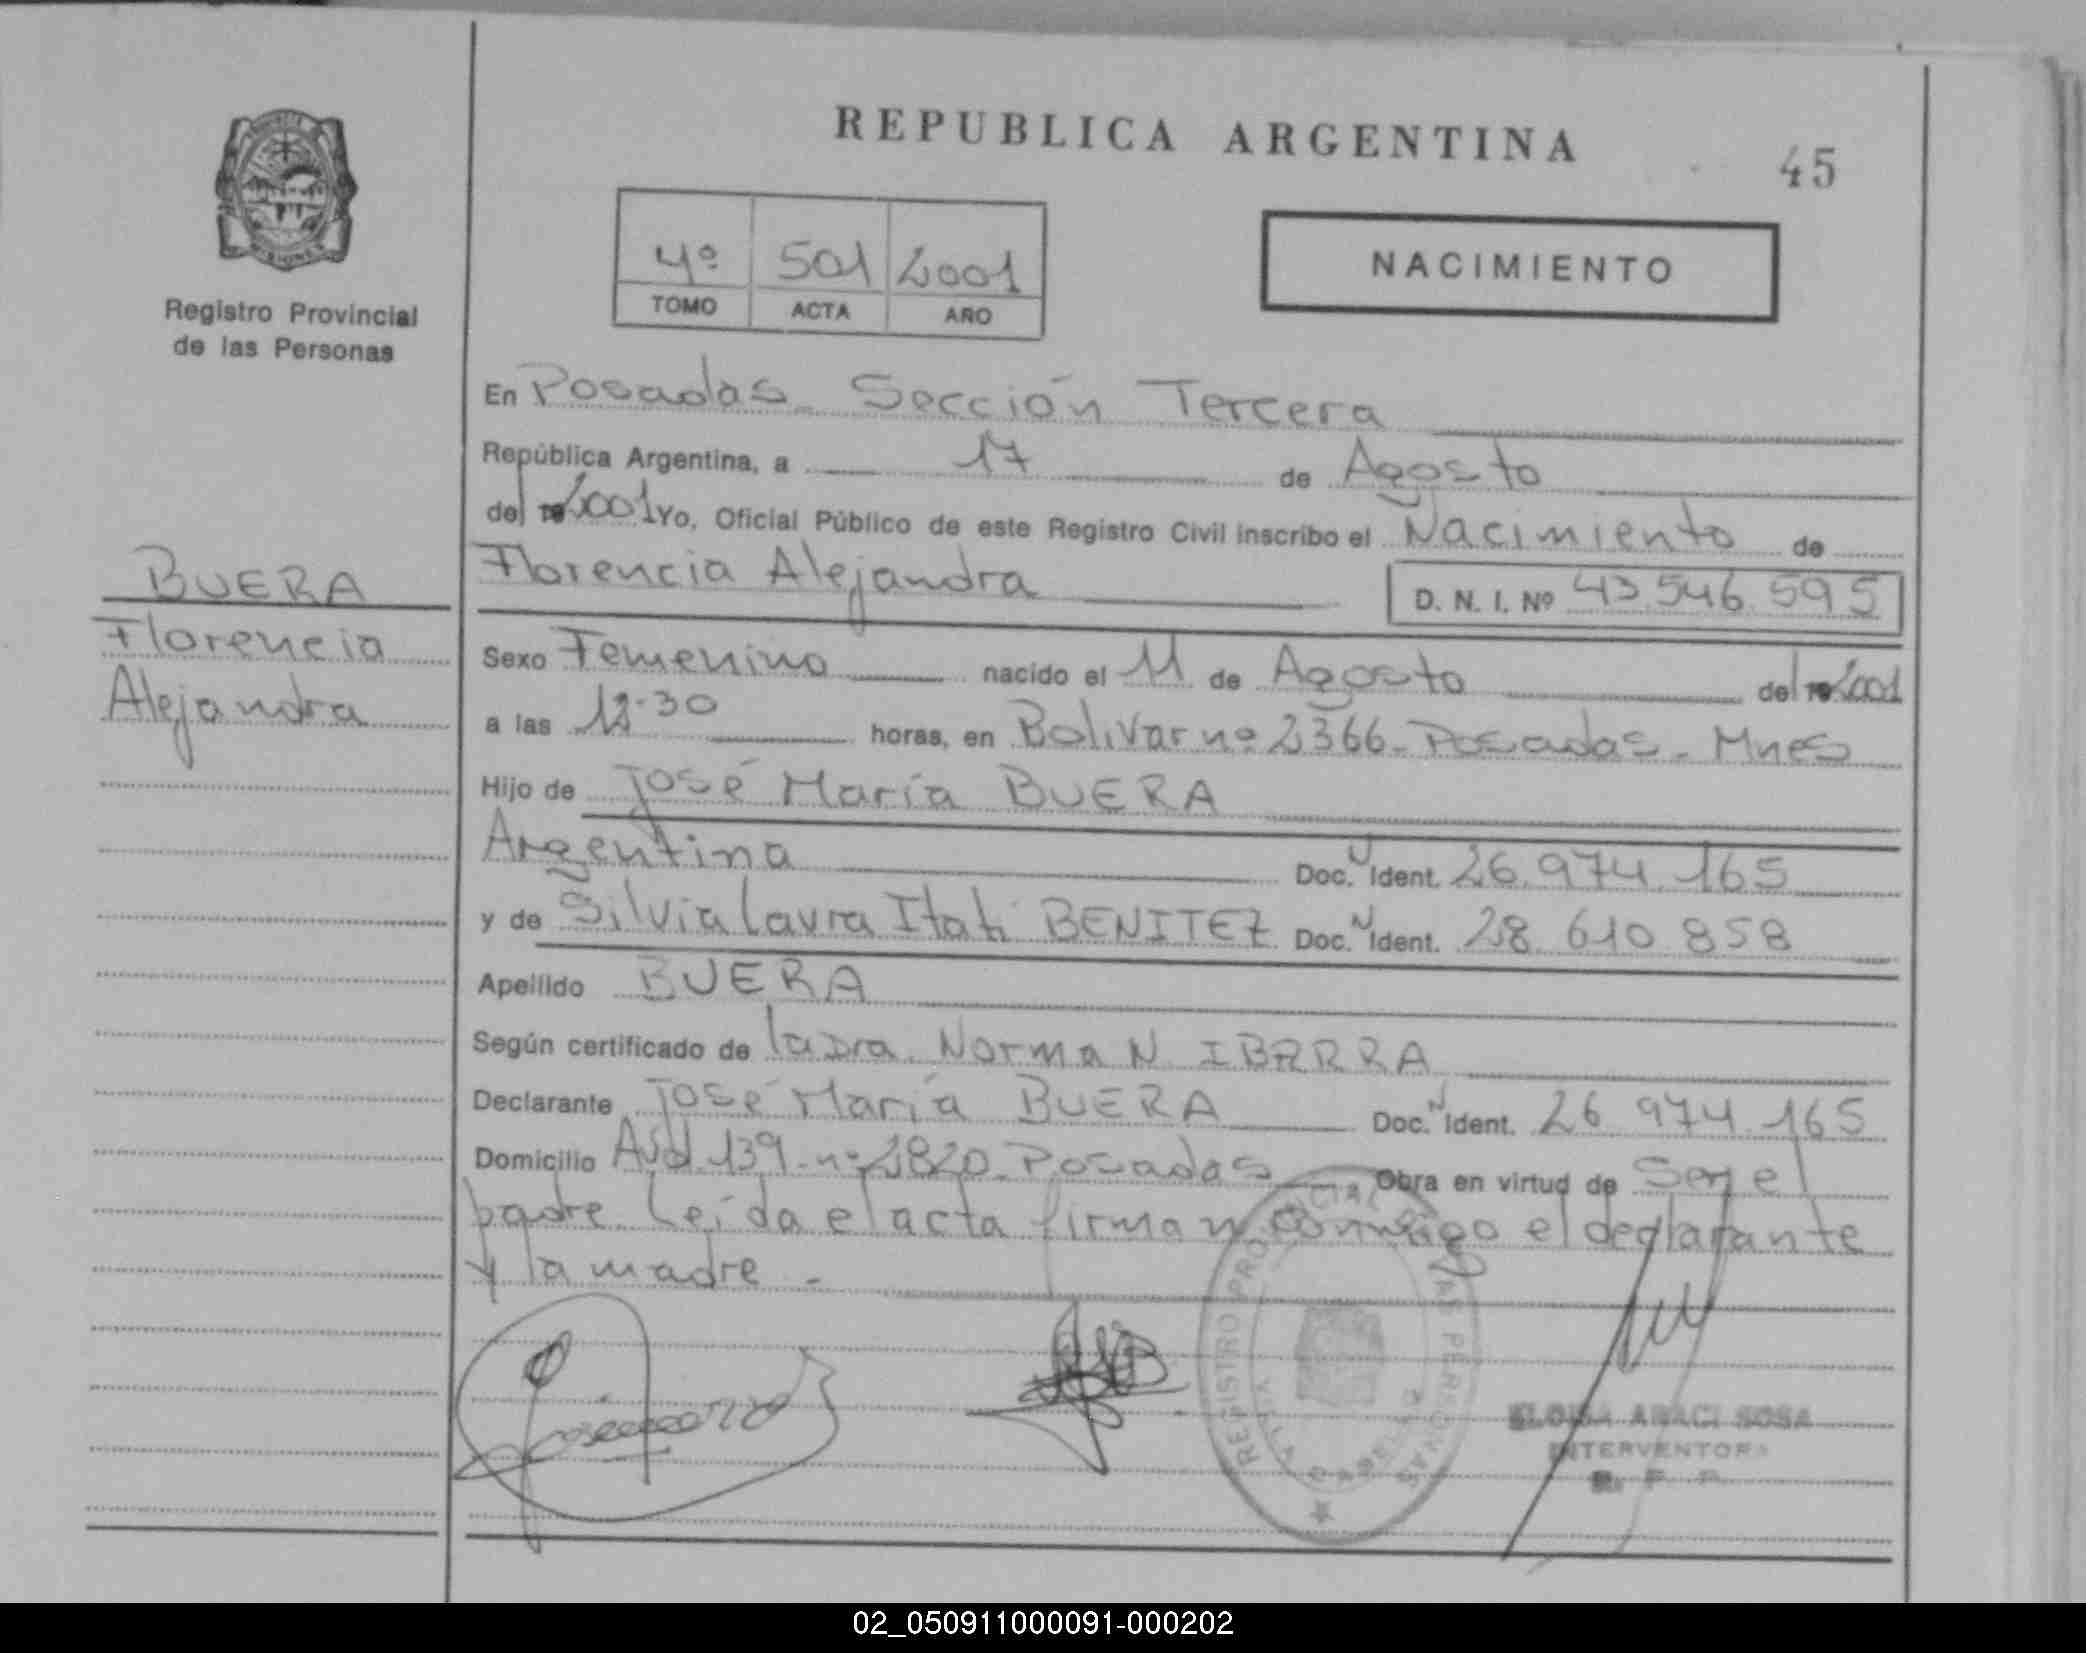 REPUBLICA ARGENTINA
45
4º 501 2001
TOMO ACTA AÑO
NACIMIENTO
Registro Provincial
de las Personas
En Posadas - Sección Tercera
República Argentina, a 17 de Agosto
del 2001 Yo, Oficial Público de este Registro Civil inscribo el Nacimiento de
Florencia Alejandra D. N. I. Nº 43.546.595
BUERA
Florencia
Alejandra
Sexo Femenino nacido el 11 de Agosto del 2001
a las 12.30 horas, en Bolivar nº 2366 - Posadas - Mnes
Hijo de José María BUERA
Argentina Doc. N Ident. 26.974.165
y de Silvia Laura Itati BENITEZ Doc. N Ident. 28.610.858
Apellido BUERA
Según certificado de la Dra. Norma N. IBARRA
Declarante José María BUERA Doc. N Ident. 26.974.165
Domicilio Avd 139 - nº 2820 - Posadas Obra en virtud de Ser el
padre Leída el acta firman conmigo el declarante
y la madre -
REGISTRO PROVINCIAL DE LAS PERSONAS
VILLA CABELLO
ELOISA ARACI SOSA
INTERVENTORA
R. P. P.
02_050911000091-000202